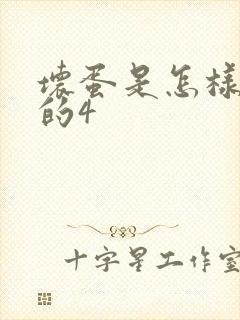 壞蛋是怎樣
的4
十字星工作室